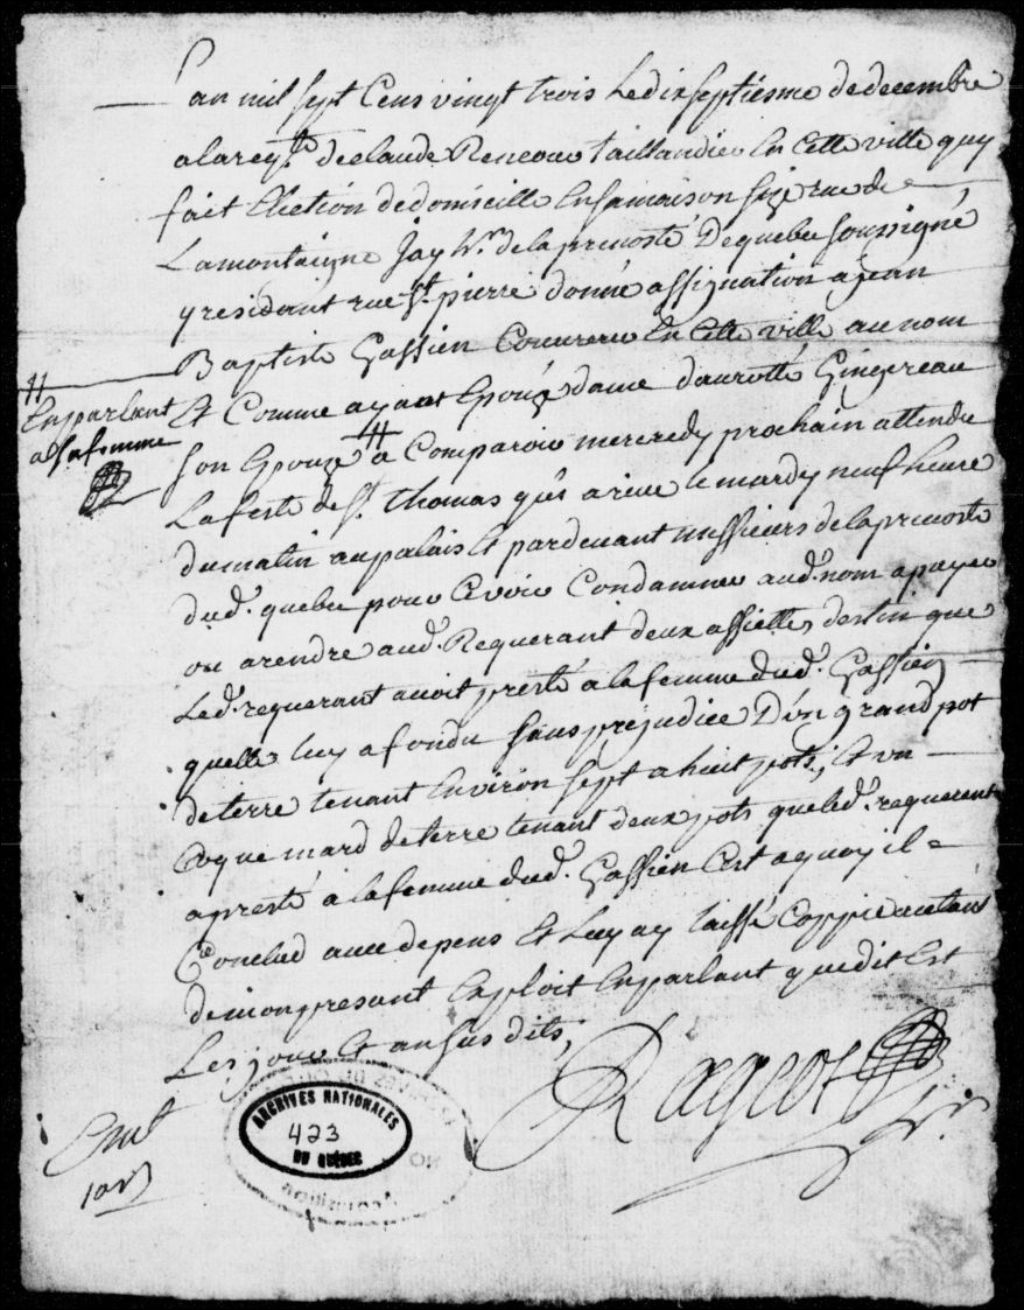 Lan mil sept Cens vingt trois Le dixseptiesme de decembre
a la req.te de claude Reneau taillandier En cette ville quy
fait Election de domicille En sa maison size rue de
Lamontaigne Jay h.r de la prevosté De quebec soussigné
y residant rue St. pierre donné assignation a jean
Baptiste Gassien Couvreur En cette ville au nom
Et Comme ayant Epouzé dame dorotté Gingereau
son Epouze # a Comparoir mercredy prochain attendu
La feste de St. thomas qui arive le mardy neuf heure
du matin au palais Et pardevant messieurs de la prevosté
dud. quebec pour Ce voir Condamner aud. nom a payer
ou a rendre aud. Requerant deux assiettes destin que
Led. requerant avoit presté a la femme dud. Gassien
quelle luy a fondu sans prejudice D'ün grand pot
de terre tenant Environ sept a huit pots; Et un
Coquemard de terre tenant deux pots que led. requerent
a presté a la femme dud. Gassien Cest a quoy il
Conclud avec depens Et Luy ay laissé Coppie autant
de mon present Exploit En parlant que dit Est
Les jour Et an sus dits,
#
En parlant
a sa femme
Rageot
hr.
ARCHIVES NATIONALES
423
DU QUÉBEC